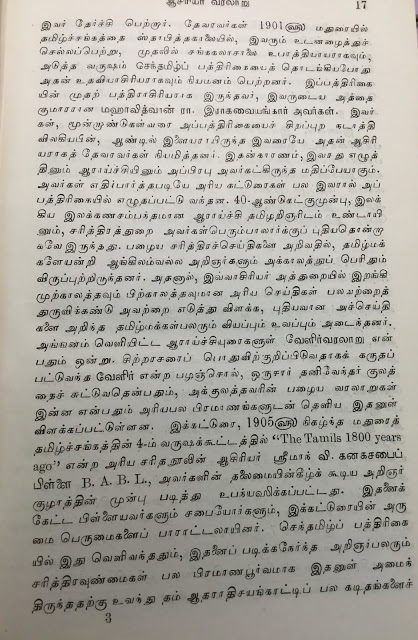 ஆசிரியர் வரலாறு 17
இவர் தேர்ச்சி பெற்றார். தேவரவர்கள் 1901ளு மதுரையில்
தமிழ்ச்சங்கத்தை ஸ்தாபித்தகாலையில், இவரும் உடனழைத்துச்
செல்லப்பெற்று, முதலில் சங்ககலாசாலை உபாத்தியாயராகவும்,
அடுத்த வருஷம் செந்தமிழ்ப் பத்திரிகையைத் தொடங்கியபோது
அதன் உதவியாசிரியராகவும் நியமனம் பெற்றனர். இப்பத்திரிகை
யின் முதற் பத்திராசிரியராக இருந்தவர், இவருடைய அத்தை
குமாரரான மஹாவித்வான் ரா. இராகவையங்கார் அவர்கள். இவர்
கள், மூன்றாண்டுகள்வரை அப்பத்திரிகையைச் சிறப்புற நடாத்தி
விலகியபின், ஆண்டில் இளையராயிருந்த இவரையே அதன் ஆசிரி
யராகத் தேவரவர்கள் நியமித்தனர். இதன்காரணம், இவரது எழுத்
தினும் ஆராய்ச்சியினும் அப்பிரபு அவர்கட்கிருந்த மதிப்பேயாகும்.
அவர்கள் எதிர்பார்த்தபடியே அரிய கட்டுரைகள் பல இவரால் அப்
பத்திரிகையில் எழுதப்பட்டு வந்தன. 40-ஆண்டுகட்குமுன்பு, இலக்
கிய இலக்கணசம்பந்தமான ஆராய்ச்சி தமிழறிஞரிடம் உண்டாயி
னும், சரித்திரத்துறை அவர்கள்பெரும்பாலார்க்குப் புதியதொன்று
கவே இருந்தது. பழைய சரித்திரச்செய்திகளை அறிவதில், தமிழ்மக்
களேயன்றி ஆங்கிலம்வல்ல அறிஞர்களும் அக்காலத்துப் பெரிதும்
விருப்புற்றிருந்தனர். அதனால், இவ்வாசிரியர் அத்துறையில் இறங்கி
முற்காலத்தவும் பிற்காலத்தவுமான அரிய செய்திகள் பலவற்றைத்
துருவிக்கண்டு அவற்றை எடுத்து விளக்க, புதியனவான அச்செய்தி
களை அறிந்த தமிழ்மக்கள்பலரும் வியப்பும் உவப்பும் அடைந்தனர்.
அங்ஙனம் வெளியிட்ட ஆராய்ச்சியுரைகளுள் வேளிர்வரலாறு என்
பதும் ஒன்று. சிற்றரசரைப் பொதுவிற்குறிப்பிடுவதாகக் கருதப்
பட்டுவந்த வேளிர் என்ற பழஞ்சொல், ஒருசார் தனிவேந்தர் குலத்
தைச் சுட்டுவதென்பதும், அக்குலத்தவரின் பழைய வரலாறுகள்
இன்ன என்பதும் அரியபல பிரமாணங்களுடன் தெளிய இதனுள்
விளக்கப்பட்டுள்ளன. இக்கட்டுரை, 1905ளு நிகழ்ந்த மதுரைத்
தமிழ்ச்சங்கத்தின் 4-ம் வருஷக்கூட்டத்தில் “The Tamils 1800 years
ago” என்ற அரிய சரிதநூலின் ஆசிரியர் ஸ்ரீமாந் வி. கனகசபைப்
பிள்ளை B. A. B. L., அவர்களின் தலைமையின்கீழ்க் கூடிய அறிஞர்
குழாத்தின் முன்பு படித்து உபந்யஸிக்கப்பட்டது. இதனைக்
கேட்ட பிள்ளையவர்களும் சபையோர்களும், இக்கட்டுரையின் அரு
மை பெருமைகளைப் பாராட்டலாயினர். செந்தமிழ்ப் பத்திரிகை
யில் இது வெளிவந்ததும், இதனைப் படிக்கநேர்ந்த அறிஞர்பலரும்
சரித்திரவுண்மைகள் பல பிரமாணபூர்வமாக இதனுள் அமைந்
திருந்ததற்கு உவந்து தம் ஆதராதிசயங்காட்டிப் பல கடிதங்களைச்
3